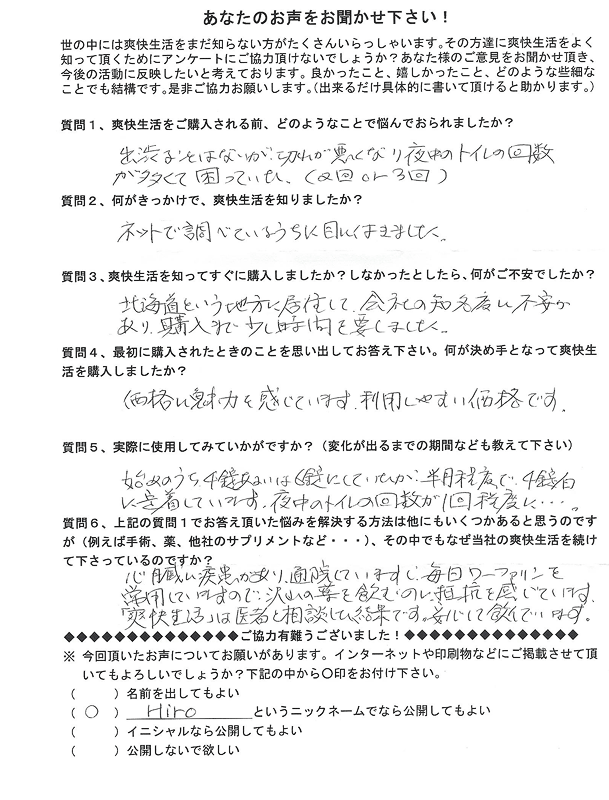 あなたのお声をお聞かせ下さい！
世の中には爽快生活をまだ知らない方がたくさんいらっしゃいます。その方達に爽快生活をよく
知って頂くためにアンケートにご協力頂けないでしょうか？あなた様のご意見をお聞かせ頂き、
今後の活動に反映したいと考えております。良かったこと、嬉しかったこと、どのような些細な
ことでも結構です。是非ご協力お願いします。（出来るだけ具体的に書いて頂けると助かります。）
質問１、爽快生活をご購入される前、どのようなことで悩んでおられましたか？
出渋ることはないが、切れが悪くなり夜中のトイレの回数
が多くて困っていた、（2回or3回）
質問２、何がきっかけで、爽快生活を知りましたか？
ネットで調べているうちに目にはきました。
質問３、爽快生活を知ってすぐに購入しましたか？しなかったとしたら、何がご不安でしたか？
北海道という地方に居住して、会社の知名度に不安が
あり、購入まで少し時間を要しました。
質問４、最初に購入されたときのことを思い出してお答え下さい。何が決め手となって爽快生
活を購入しましたか？
価格に魅力を感じています、利用しやすい価格です。
質問５、実際に使用してみていかがですか？（変化が出るまでの期間なども教えて下さい）
始めのうち、4錠あるいは6錠にしていたが、半月程度で、4錠/日
に定着しています。夜中のトイレの回数が1回程度に・・・。
質問６、上記の質問１でお答え頂いた悩みを解決する方法は他にもいくつかあると思うのです
が（例えば手術、薬、他社のサプリメントなど・・・）、その中でもなぜ当社の爽快生活を続け
て下さっているのですか？
心臓に疾患があり、通院していますし、毎日ワーファリンを
常用していますので、沢山の薬を飲むのに抵抗を感じています。
「爽快生活」は医者と相談した結果です。安心して飲んでいます。
◆◆◆◆◆◆◆◆◆◆◆◆◆◆ご協力有難うございました！◆◆◆◆◆◆◆◆◆◆◆◆◆◆
※ 今回頂いたお声についてお願いがあります。インターネットや印刷物などにご掲載させて頂
いてもよろしいでしょうか？下記の中から〇印をお付け下さい。
（　　）名前を出してもよい
（〇）Hiroというニックネームでなら公開してもよい
（　　）イニシャルなら公開してもよい
（　　）公開しないで欲しい